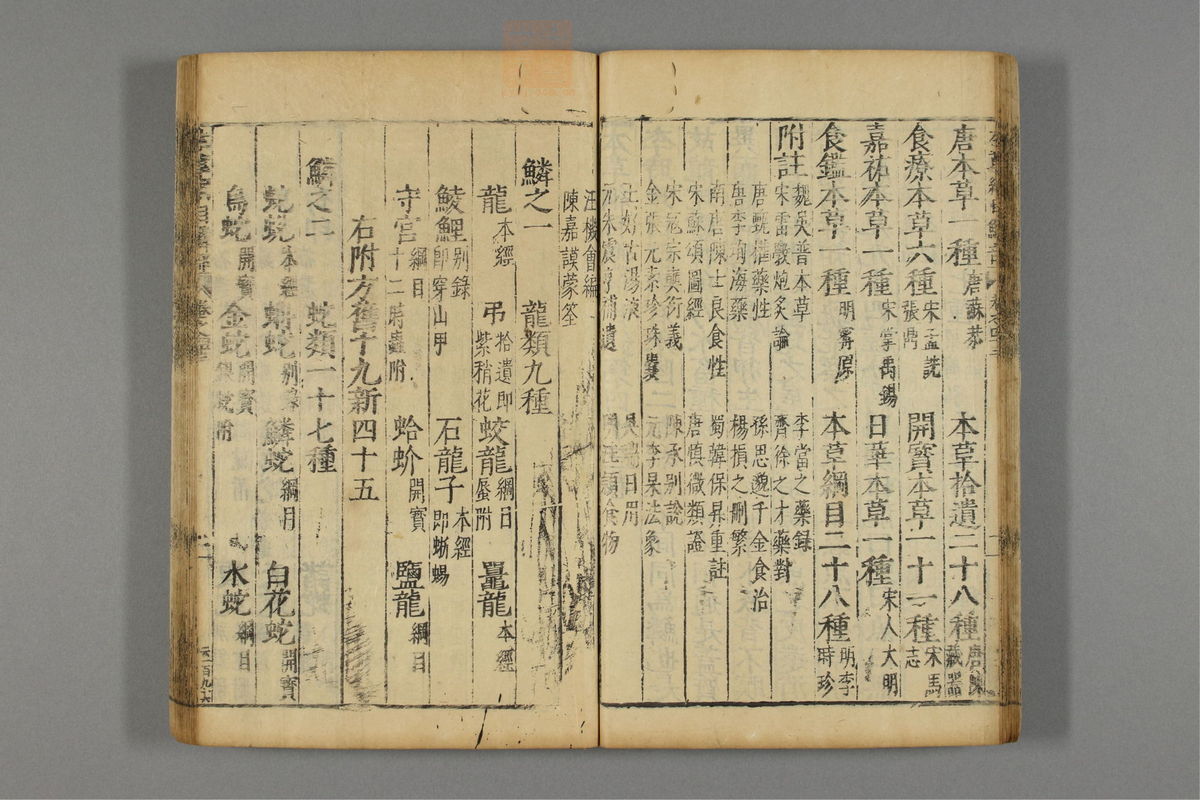 唐本草一種唐蘇恭 本草拾遺二十八種唐陳藏器
食療本草六種宋孟詵張鼎 開寶本草一十一種宋馬志
嘉祐本草一種宋掌禹錫 日華本草一種宋人大明
食鑑本草一種明甯原 本草綱目二十八種明李時珍
附註
魏吳普本草 李當之藥錄
宋雷斆炮炙論 齊徐之才藥對
唐甄權藥性 孫思邈千金食治
唐李珣海藥 楊損之刪繁
南唐陳士良食性 蜀韓保昇重註
宋蘇頌圖經 唐慎微類證
宋寇宗奭衍義 陳承別說
金張元素珍珠囊 元李杲法象
王好古湯液 吳瑞日用
元朱震亨補遺 明汪穎食物
汪機會編
陳嘉謨蒙筌
鱗之一 龍類九種
龍本經 弔拾遺即紫稍花 蛟龍綱目蜃附 鼉龍本經
鯪鯉別錄即穿山甲 石龍子本經即蜥蜴
守宮綱目十二時蟲附 蛤蚧開寶 鹽龍綱目
右附方舊十九新四十五
鱗之二 蛇類一十七種
蛇蛻本經 蚺蛇別錄 鱗蛇綱目 白花蛇開寶
烏蛇開寶 金蛇開寶銀蛇附 水蛇綱目